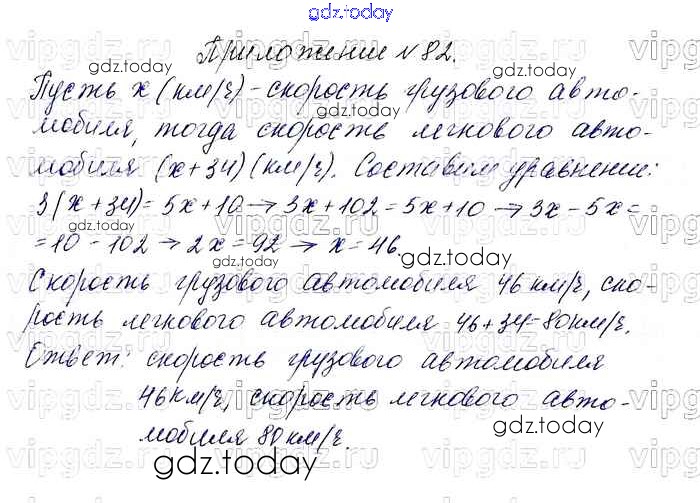 gdz.today
Приложение №82.
Пусть x (км/ч) - скорость грузового авто-
мобиля, тогда скорость легкового авто-
мобиля (x+34) (км/ч). Составим уравнение:
3(x+34)=5x+10 → 3x+102=5x+10 → 3x-5x=
=10-102 → 2x=92 → x=46.
Скорость грузового автомобиля 46 км/ч, ско-
рость легкового автомобиля 46+34=80км/ч.
Ответ: скорость грузового автомобиля
46км/ч, скорость легкового авто-
мобиля 80км/ч.
gdz.today